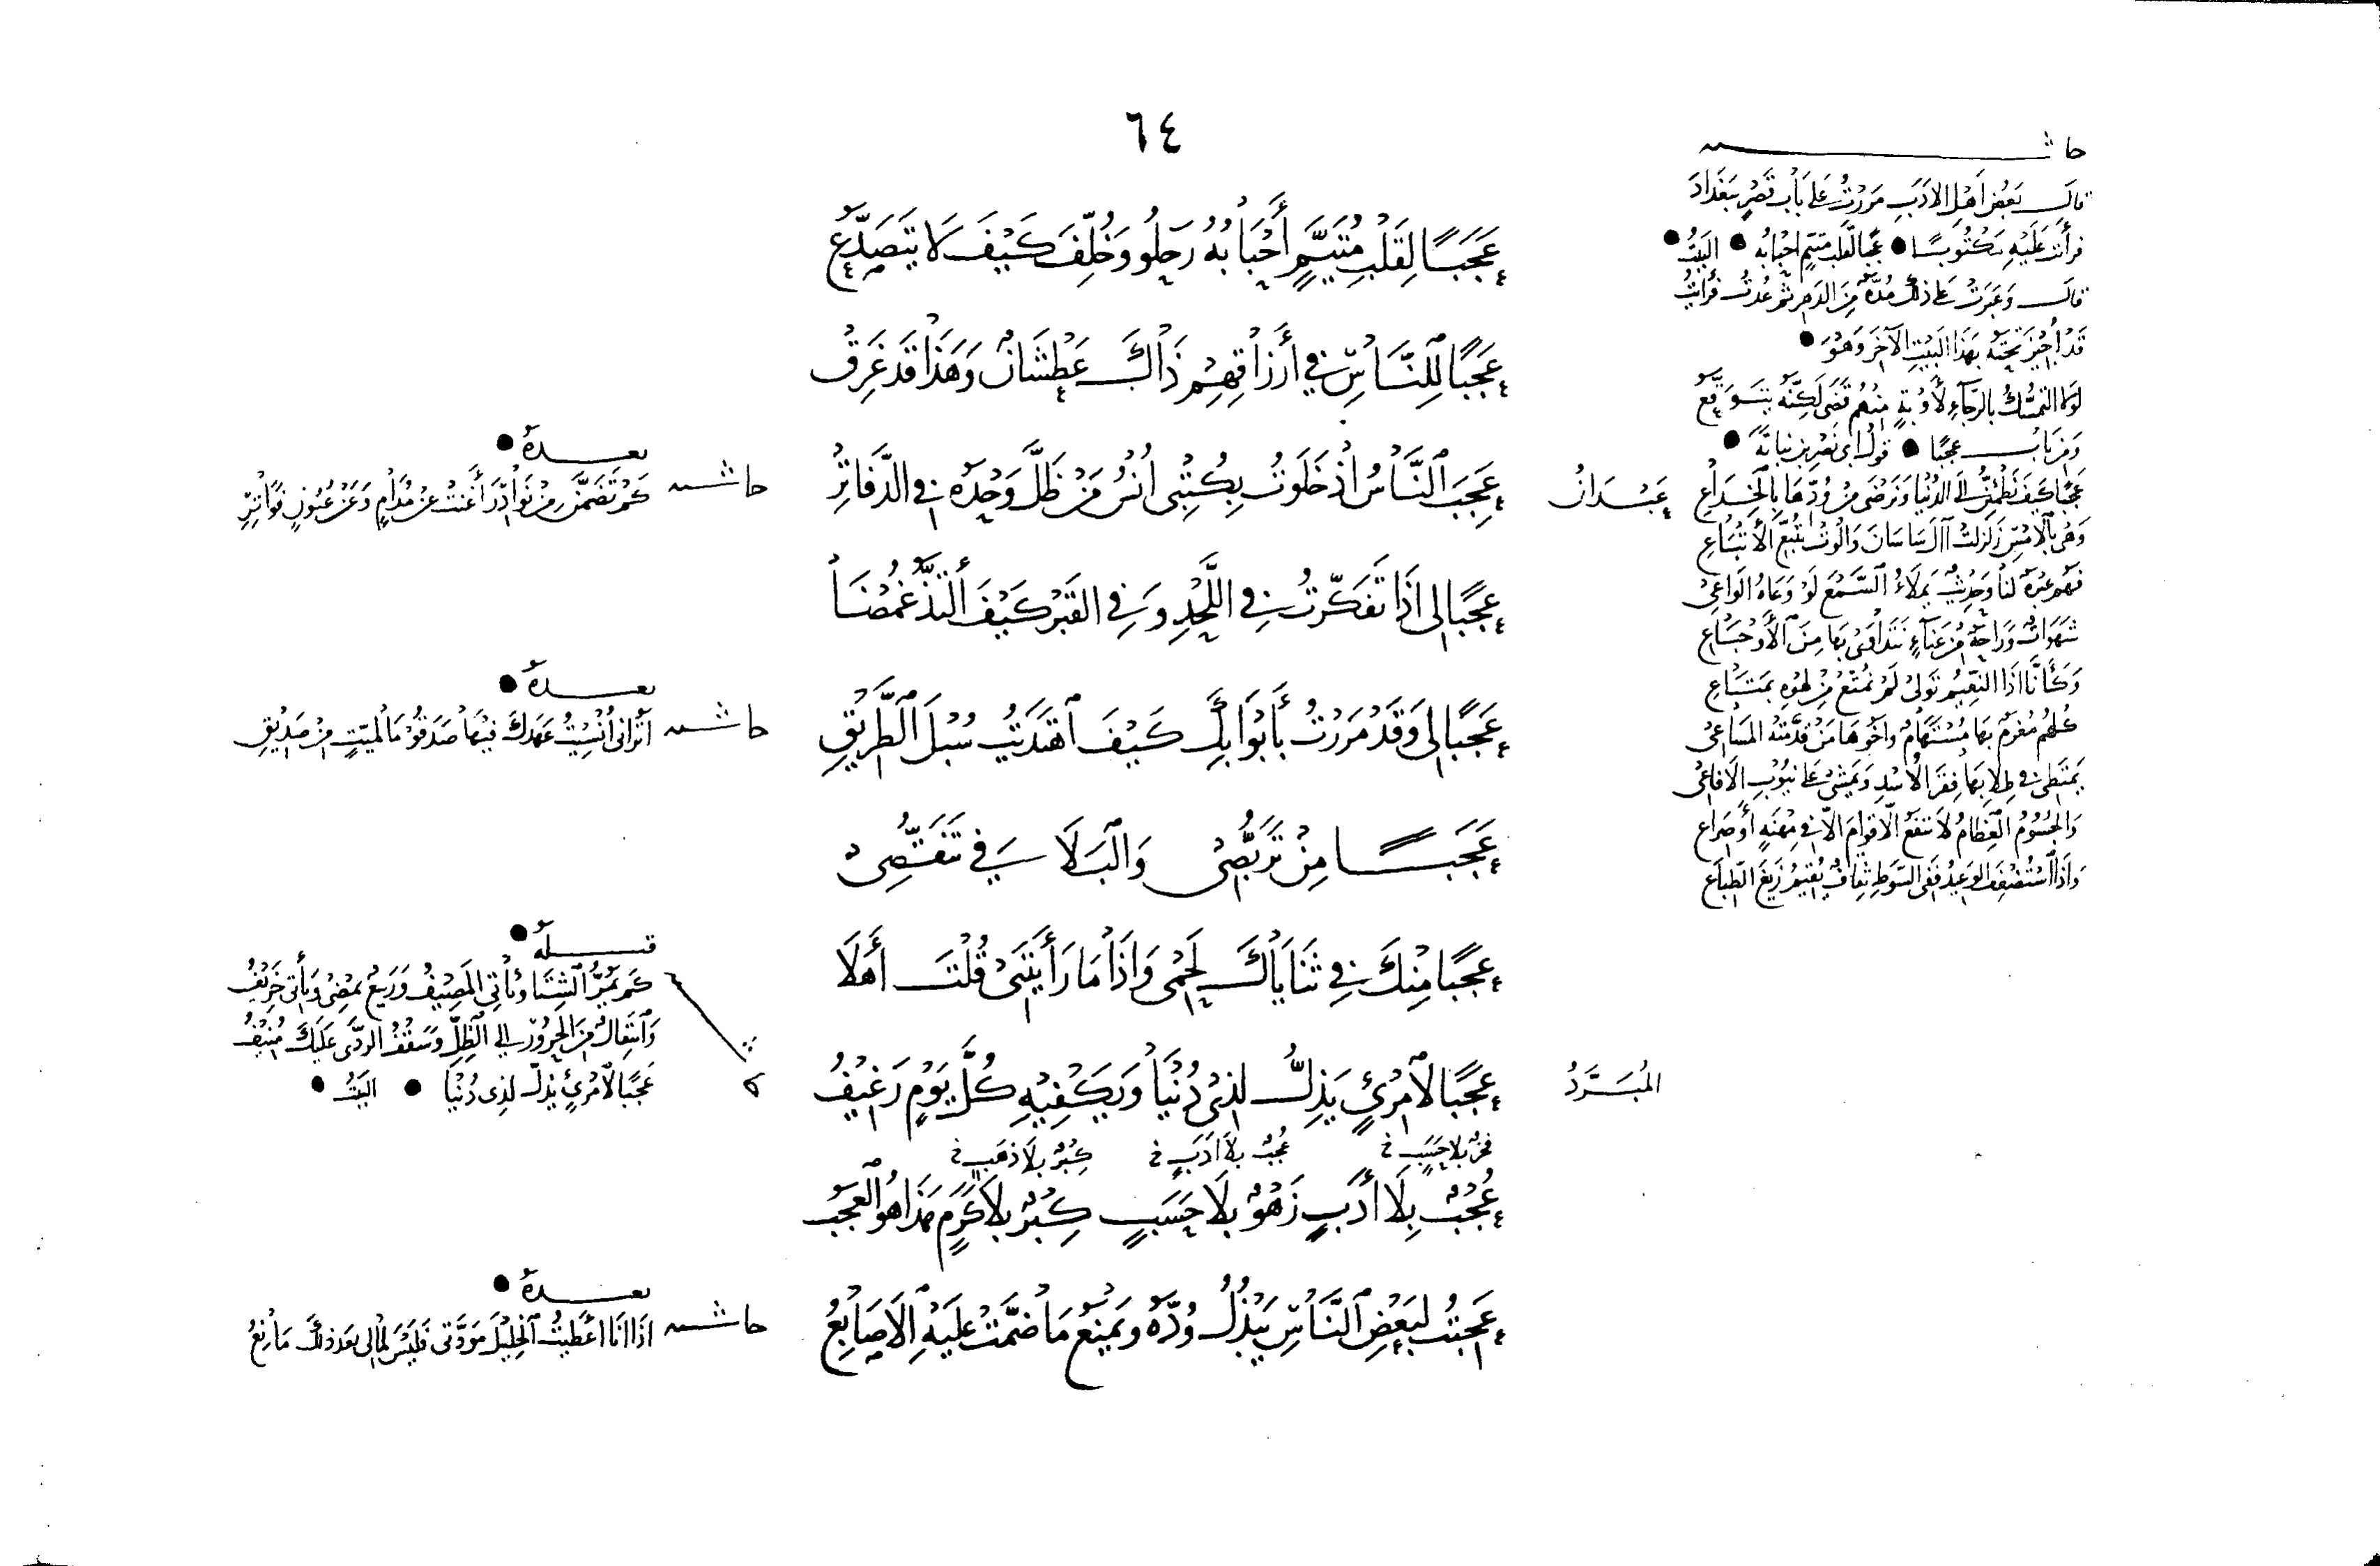 ٦٤
حاشية
قال بعض أهل الأدب مررت على باب قصر ببغداد
فرأيت عليه مكتوبًا ● عجبا لقلب متيم أحبابه ● البيت ●
قال وعبرت على ذلك مدة من الدهر ثم عدت فرأيت
قد أجيز تحته بهذا البيت الآخر وهو ●
لولا التمسك بالرجاء لأوبة منهم قضى لكنه يتوقع
ومن باب عجبا ● قول ابي نصر بن نباتة ●
عجبًا كيف نطمئن إلى الدنيا ونرضى من ودها بالخداع
وهي بالأمس زلزلت آل ساسان والوت بتبع الأتباع
فهم عبرة لنا وحديث يملاء السمع لو وعاه الواعي
شهوات وراحة من عناء نتداوى بها من الأوجاع
وكأنا اذا النعيم تولى لم نمتع من لهوه بمتاع
كلهم مغرم بها مستهام وأخوها من قدمته المساعي
يمتطي في طلابها فقر الأسد ويمشي على نيوب الأفاعي
والجسوم العظام لا تنفع الأقوام الا في مهنة أو صراع
واذا استضعف الوعيد ففي السوط ثقاف يقيم زيغ الطباع
عَجَبًا لِقَلْبِ مُتَيَّمٍ أَحْبَابُهُ رَحِلُو وَخُلِّفَ كَيْفَ لَا يَتَصَدَّعُ
عَجَبًا لِلنَّاسِ فِي أَرْزَاقِهِم ذَاكَ عَطْشَانٌ وَهَذَا قَد غَرِق
عَبْدَانُ
عَجِبَ النَّاسُ اذْ خَلَوتُ بِكُتْبِى انْسُ مَنْ ظَلَّ وَحْدَهُ فِي الدَّفَاتِرْ
حاشية
بعده ●
كم تضمن من نوادر أغنت عن مدام وعن عيون فواتر
عَجَبًا لِى اذَا تَفَكَّرتُ فِي اللَّحْدِ وَفِي القَبْر كَيْفَ أَلتَذُّ غُمْضَا
عَجَبًا لِى وَقَدْ مَرَرْتُ بأَبْوَابِكَ كَيْفَ اهْتَدَيْتُ سُبْلَ الطَّرِيْقِ
حاشية
بعده ●
أتراني أنسيت عهدك فيها صدقو ما لميت من صديق
عَجَبًا مِنْ تَرَبُّصِى وَالبَلَا فِي تَقَصِّى
عَجَبًا مِنْكَ فِي ثَنَايَاكَ لَحْمِى وَاذَا مَا رَأَيْتَنِى قُلْتَ أَهْلَا
المُبَرَّدُ
عَجَبًا لاَمْرِئٍ يَذِلُّ لذِى دُنْيَا وَيَكْفِيْهِ كُلَّ يَوْمٍ رَغِيْفُ
قبله ●
كم يمر الشتا ويأتي المصيف وربيع يمضى ويأتى خريف
وانتقال من الحرور إلى الظل وسقف الردى عليك منيف
عجبًا لامرئ يذل لذى دنيا ● البيت ●
فخر بلا حسب في عجب بلا أدب في كبر بلا ذهب في
عُجْبٌ بِلَا أَدَبٍ زَهْوٌ بِلَا حَسَبٍ كِبْرٌ بِلَا كَرَمٍ هَذَا هُوَ العَجَبُ
عَجِبْتُ لِبَعْضِ النَّاسِ يَبْذُلُ وُدَّهُ وَيَمْنَعُ مَا ضَمَّتْ عَلَيْهِ الأَصَابِعُ
حاشية
بعده ●
اذا انا اعطيت الخليل مودتى فليس لمالى بعد ذلك مانع